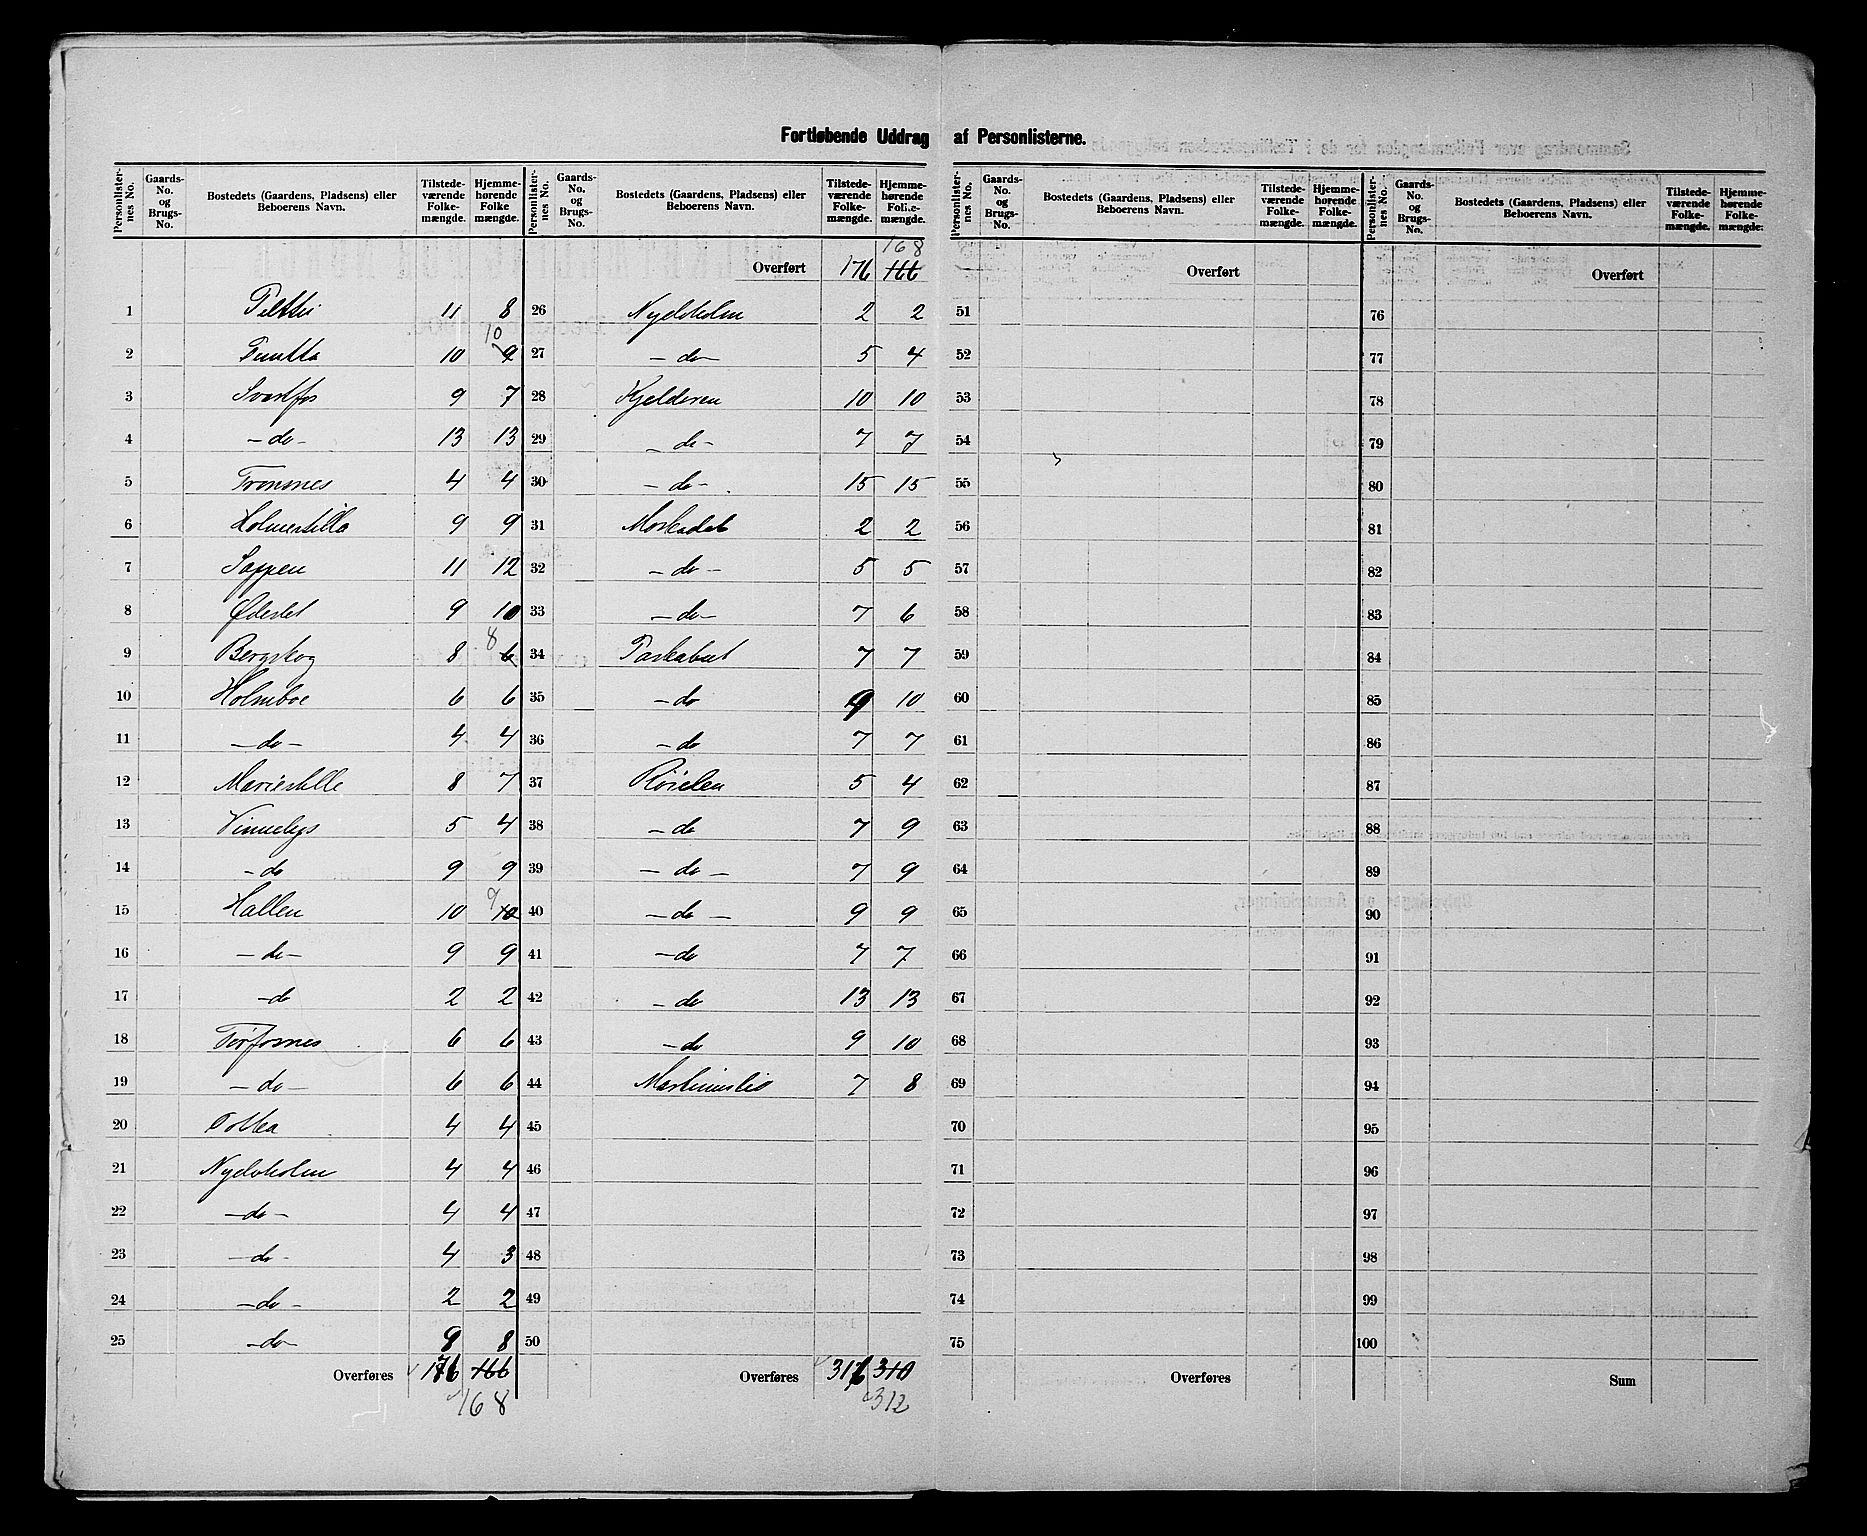 Fortløbende Uddrag af Personlisterne.
Personlister-nes No. | Gaards-No. og Brugs-No. | Bostedets (Gaardens, Pladsens) eller Beboerens Navn. | Tilstede-værende Folke-mængde. | Hjemme-hørende Folke mængde.
1 11 8
2 10 9 10
3 Svartfos 9 7
4 -do- 13 13
5 4 4
6 9 9
7 Sappen 11 12
8 9 10
9 Bergskog 8 6 8
10 Holmboe 6 6
11 -do- 4 4
12 8 7
13 5 4
14 -do 9 9
15 Hallen 10 10 9
16 -do- 9 9
17 -do 2 2
18 6 6
19 -do- 6 6
20 4 4
21 4 4
22 -do- 4 4
23 -do- 4 3
24 -do- 2 2
25 -do- 9 8
Overføres 176 166
168
Personlister-nes No. | Gaards-No. og Brugs-No. | Bostedets (Gaardens, Pladsens) eller Beboerens Navn. | Tilstede-værende Folke-mængde. | Hjemme-hørende Folke-mængde.
168
Overført 176 166
26 2 2
27 -do- 5 4
28 Kjelderen 10 10
29 -do- 7 7
30 -do- 15 15
31 2 2
32 -do- 5 5
33 -do- 7 6
34 7 7
35 -do 9 10
36 -do 7 7
37 Røielen 5 4
38 -do 7 9
39 -do- 7 9
40 -do- 9 9
41 -do 7 7
42 -do 13 13
43 -do 9 10
44 7 8
45
46
47
48
49
50
Overføres 316 310
312
Personlister-nes No. | Gaards-No. og Brugs-No. | Bostedets (Gaardens, Pladsens) eller Beboerens Navn. | Tilstede-værende Folke-mængde. | Hjemme-hørende Folke-mængde.
Overført
51
52
53
54
55
56
57
58
59
60
61
62
63
64
65
66
67
68
69
70
71
72
73
74
75
Overføres
Personlister-nes No. | Gaards-No. og Brugs-No. | Bostedets (Gaardens, Pladsens) eller Beboerens Navn. | Tilstede-værende Folke-mængde. | Hjemme-hørende Folke-mængde.
Overført
76
77
78
79
80
81
82
83
84
85
86
87
88
89
90
91
92
93
94
95
96
97
98
99
100
Sum